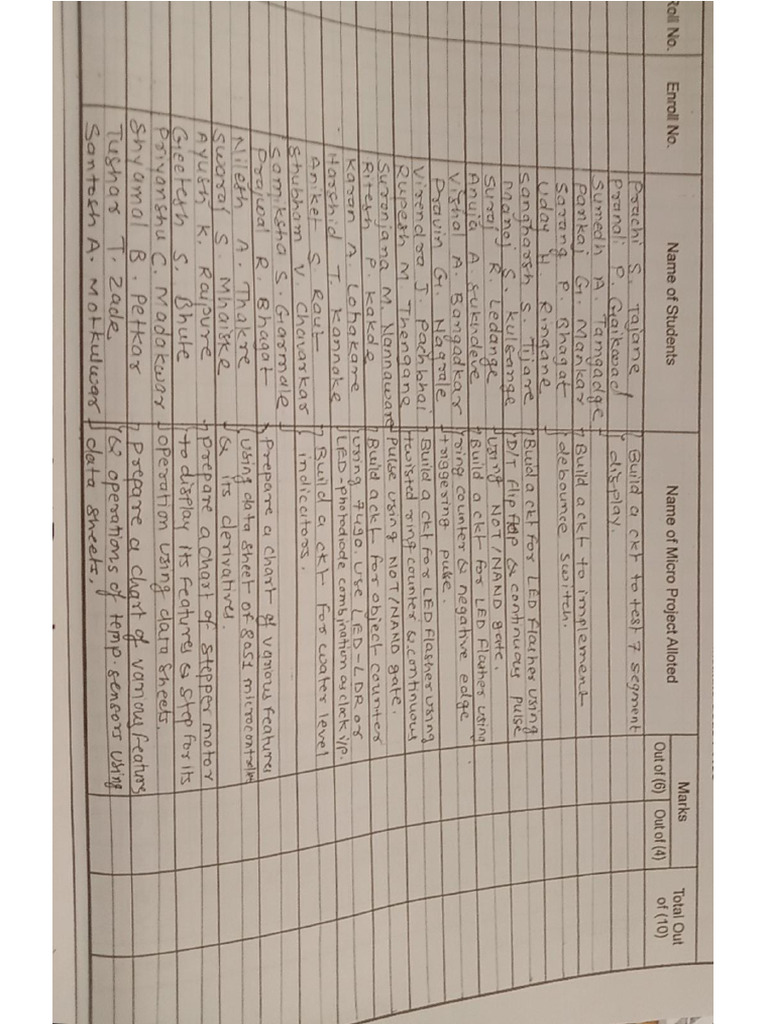 Roll No. Enroll No. Name of Students Name of Micro Project Alloted Marks Total Out of (10)
Out of (6) Out of (4)
Prachi S. Tajane Build a ckt to test 7 segment
Pranali P. Gaikawad display.
Sumedh A. Tamgadge
Pankaj G. Mankar Build a ckt to implement
Sarang P. Bhagat debounce switch.
Uday H. Ringane
Sangharsh S. Tijare Build a ckt for LED flasher using
Manoj S. Kulsange D/T flip flop & continuous pulse
Suraj R. Ledange using NOT/NAND gate.
Anuja A. Sukhdeve Build a ckt for LED Flasher using
Vishal A. Bangadkar ring counter & negative edge
Pravin G. Nagrale triggering pulse.
Virendra J. Pachbhai Build a ckt for LED flasher using
Rupesh M Thengane twisted ring counter & continuous
Suranjana M. Nannaware pulse using NOT/NAND gate.
Ritesh P. Kakde Build a ckt for object counter
Karan A Lohakare using 7490. use LED-LDR or
Harshid T. Kannake LED-photodiode combination as clock i/p.
Aniket S. Raut Build a ckt for water level
Shubham V. Chavarkar indicators.
Samiksha S. Garmale
Prajwal R. Bhagat Prepare a chart of various features
Nilesh A. Thakre using data sheet of 8051 microcontroller
Swaraj S. Mhaiske & its derivatives.
Ayush K. Raipure prepare a chart of stepper motor
Geetesh S. Bhute to display its features & step for its
Priyanshu C. Madakwar operation using data sheets.
Shyamal B. Petkar prepare a chart of various feature
Tushar T. Zade & operations of temp. sensors using
Santosh A. Motkulwar data sheets.